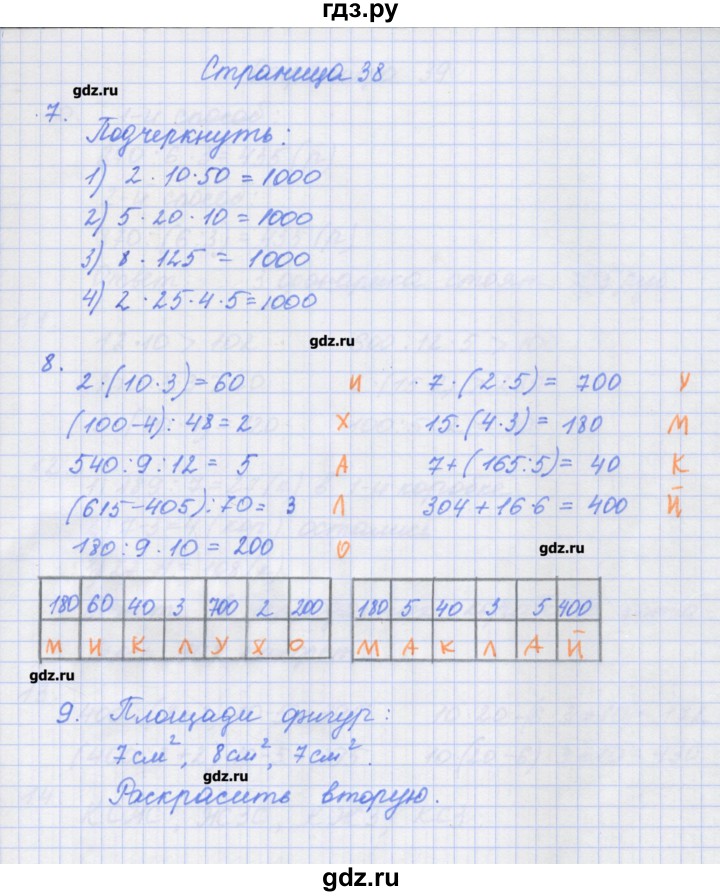 гдз.ру
Страница 38
gdz.ru
7.
Подчеркнуть:
1) 2 · 10 · 50 = 1000
2) 5 · 20 · 10 = 1000
3) 8 · 125 = 1000
4) 2 · 25 · 4 · 5 = 1000
gdz.ru
8.
2 · (10 · 3) = 60 И · 7 · (2 · 5) = 700 У
(100 - 4) : 48 = 2 Х 15 · (4 · 3) = 180 М
540 : 9 : 12 = 5 А 7 + (165 : 5) = 40 К
(615 - 405) : 70 = 3 Л 304 + 16 · 6 = 400 Й
180 : 9 · 10 = 200 О
gdz.ru
180 60 40 3 700 2 200 180 5 40 3 5 400
М И К Л У Х О М А К Л А Й
gdz.ru
9. Площади фигур:
7 см², 8 см², 7 см².
gdz.ru
Раскрасить вторую.
gdz.ru